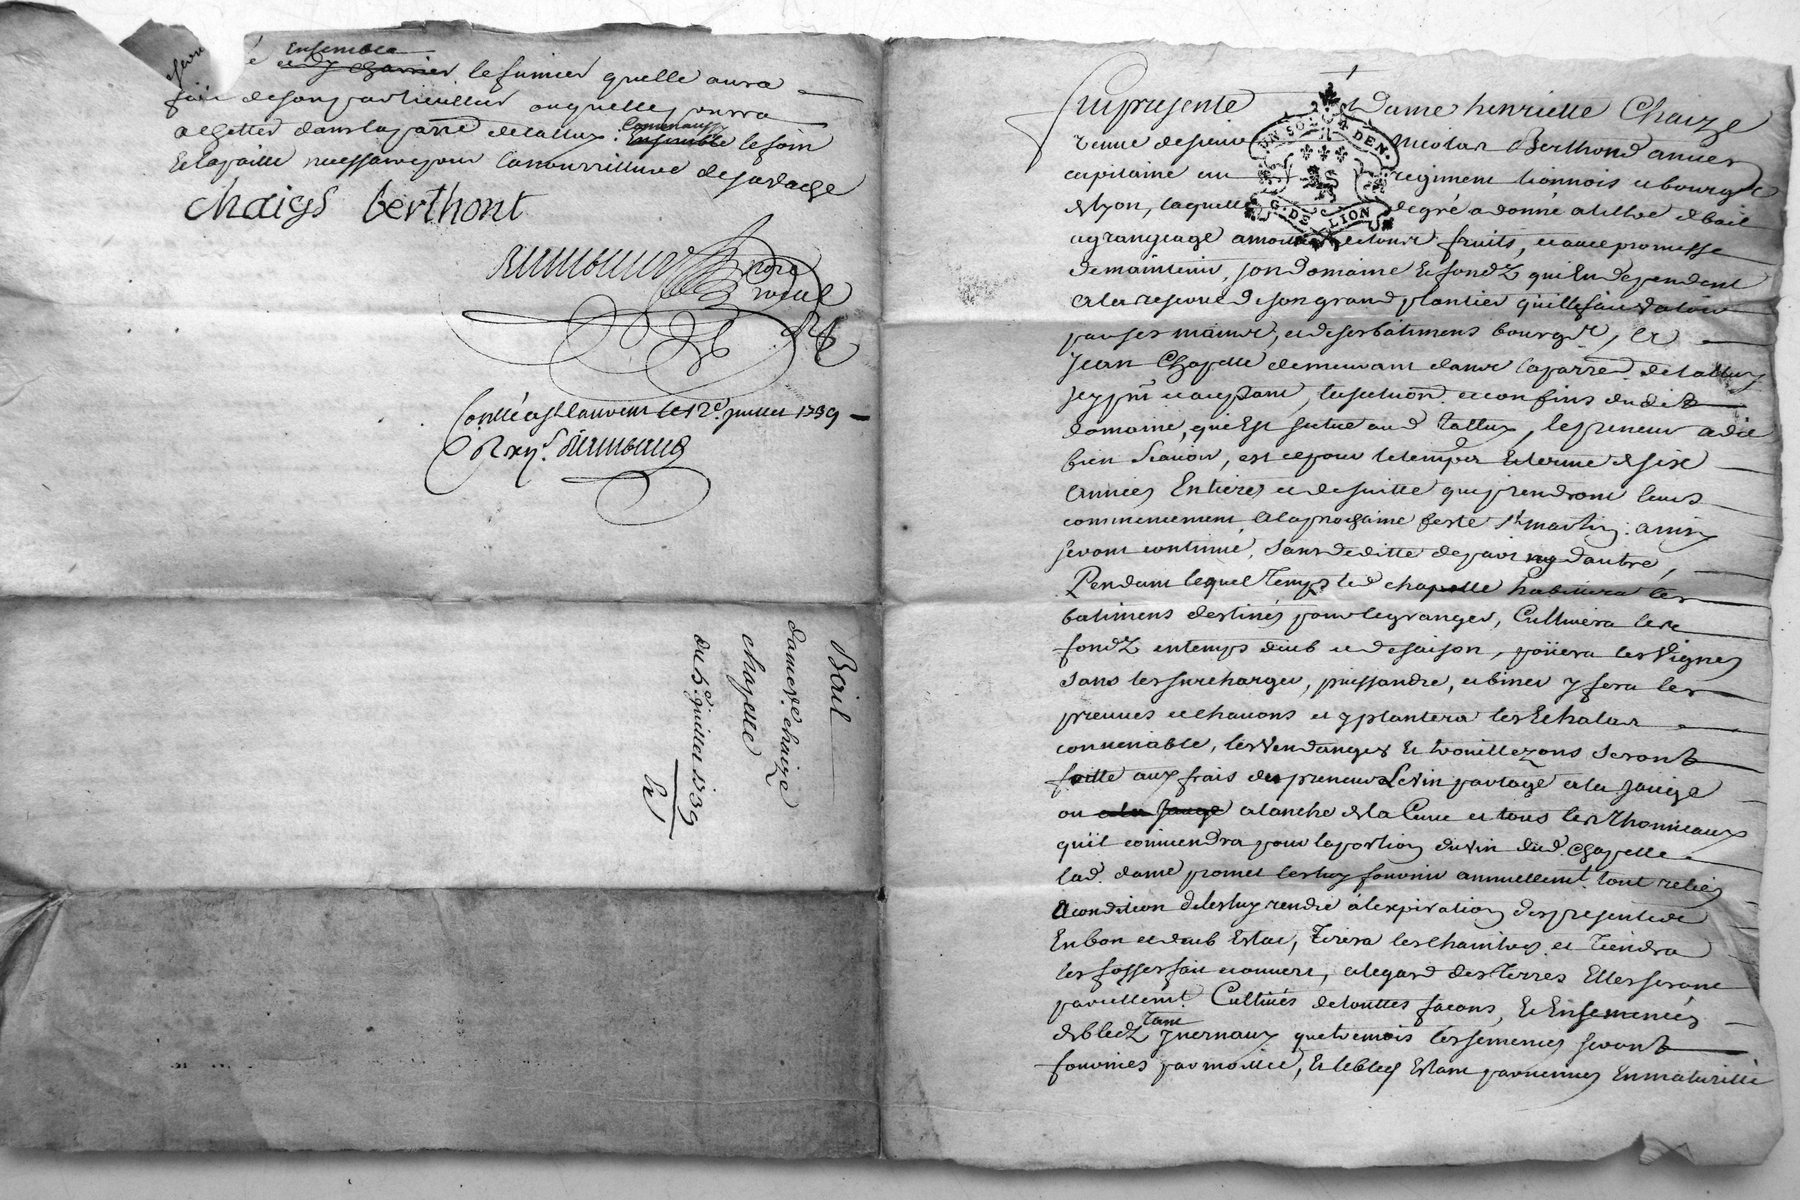 Ensemble
le fumier quelle aura
fait de son particullier ou quelle pourra
achetter dans la parr.e de tallux. Communaux
Ensemble le foin
et la paille necessaire pour la nourriture de sa vache
chaizs berthont
Contlé a st Laurent le 12e. juillet 1739
Bail
dame ve. chaize
chapelle
du 5e. juillet 1739
Fut presente Dame henriette Chaize
veuve de sieur Nicolas Berthond ancien
capitaine au regiment lionnois et bourg.s
UN SOL 4 DEN.
G. DE LION
de lyon, laquelle de gré a donné a tiltre de bail
a grangeage a moitié de tous fruits, et avec promesse
de maintenir, son domaine et fondz qui en dependent
a la reserve de son grand plantier quelle fait valoir
par ses mains, et de ses batimens bourg.s, a
Jean Chapelle demeurant dans la parr.e de tallux
icy p.nt et acceptant, la scituation et confins dudit
domaine, qui est scitué aud. Tallux, le preneur a dit
bien scavoir, et ce pour le temps et terme de six
années Entieres et de suitte qui prendront leurs
commencement a la prochaine feste st martin
seront continué, sans deditte de part ny dautre,
Pendant lequel Temps led. chapelle habittera les
batimens destinés pour le granger, Cultivera les
fondz en temps deub et de saison, poüera les vignes
sans les surcharger, puissandre, et biner y fera les
preuves et chavons et y plantera les Echalas
convenable, les vendanges et trouillezons seront
faitte aux frais du preneur Le vin partagé a la jauge
ou a la jauge a lanche de la Cuve et tous les Thonneaux
qu'il conviendra pour la portion du vin dud. Chapelle
lad. dame promet les luy fournir annuellem.t tout reliés
a condition de les luy rendre à lexpiration des presentes
En bon et deub Estat, Tirera les chaintres et Tiendra
les fossés fait et ouvert, a legard des Terres Elles seront
pareillem.t Cultivés de touttes facons, et Ensemencés
de bledz tant yvernaux que tremois les semences seront
fournies par moitié, et les bleds Estant parvenues En maturitté